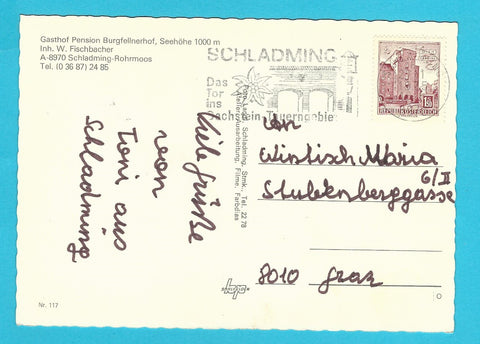 Gasthof Pension Burgfellnerhof, Seehöhe 1000 m
Inh. W. Fischbacher
A-8970 Schladming-Rohrmoos
Tel. (0 36 87) 24 85
SCHLADMING
Das
Tor
ins
Dachstein-Tauerngebiet
REPUBLIK ÖSTERREICH
Viele Grüße
von
Toni aus
Schladming
Schladming, Stmk., Tel. 22 78
Filme, Farbdias
von
Windisch Maria
Stubenberggasse
6/II
8010 Graz
Nr. 117